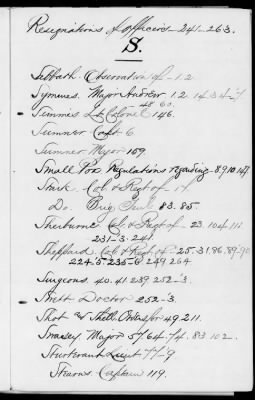 Resignations of officers - 241-263.
S.
Sabbath Observation of - 12
Symmes. Major Andrew 12. 14.34-
Simmes Lt. Colonel 146.
48 60.
Sumner Capt 6
Sumner Major 109.
Small Pox Regulations regarding - 8.9.10.147
Stark Col & Regt of 14
Do. Brig 83.85.
Sherburne Col & Regt of 23.104.111
231-3.241.
Sheppard Col & Regt of 25-31.86.89-90
224-5-235-6 249 264
Surgeons 40.41 239 252-3.
Doctor 252-3.
Shot & Shell Orders for 49.211.
Swasey Major 57.64.74.83.102.
Sturtevant Lieut 77-9
Stearns Captain 119.